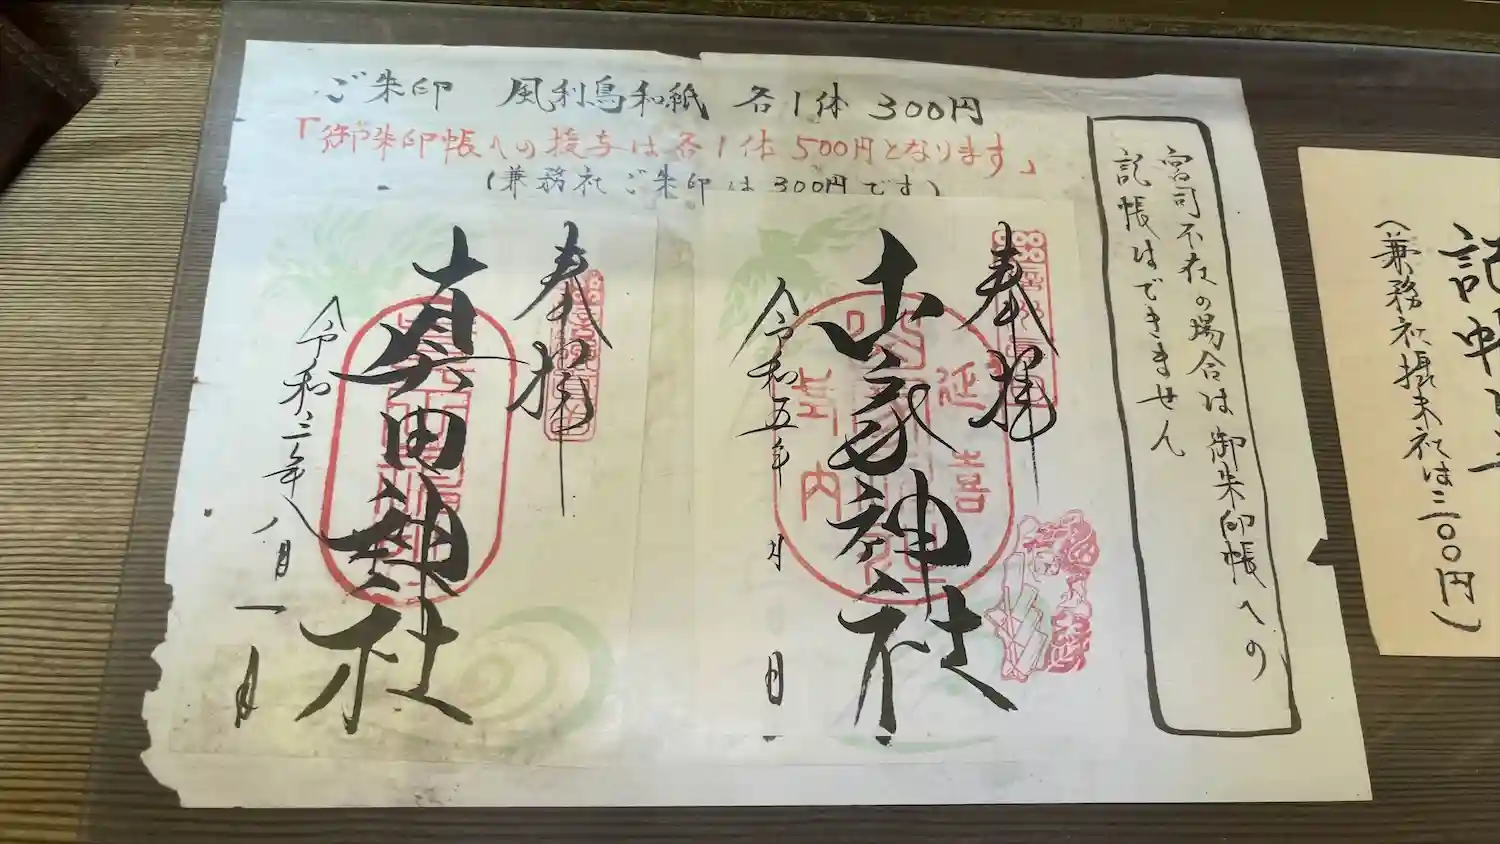 ご朱印 風利鳥和紙 各1体 300円
「御朱印帳への授与は各1体 500円となります」
(兼務社 ご朱印は 300円です)
宮司不在の場合は御朱印帳への
記帳はできません
奉拝
山家神社
延喜
式内
令和五年 月 日
奉拝
真田神社
令和三年八月一日
記帳
(兼務社摂末社は三〇〇円)